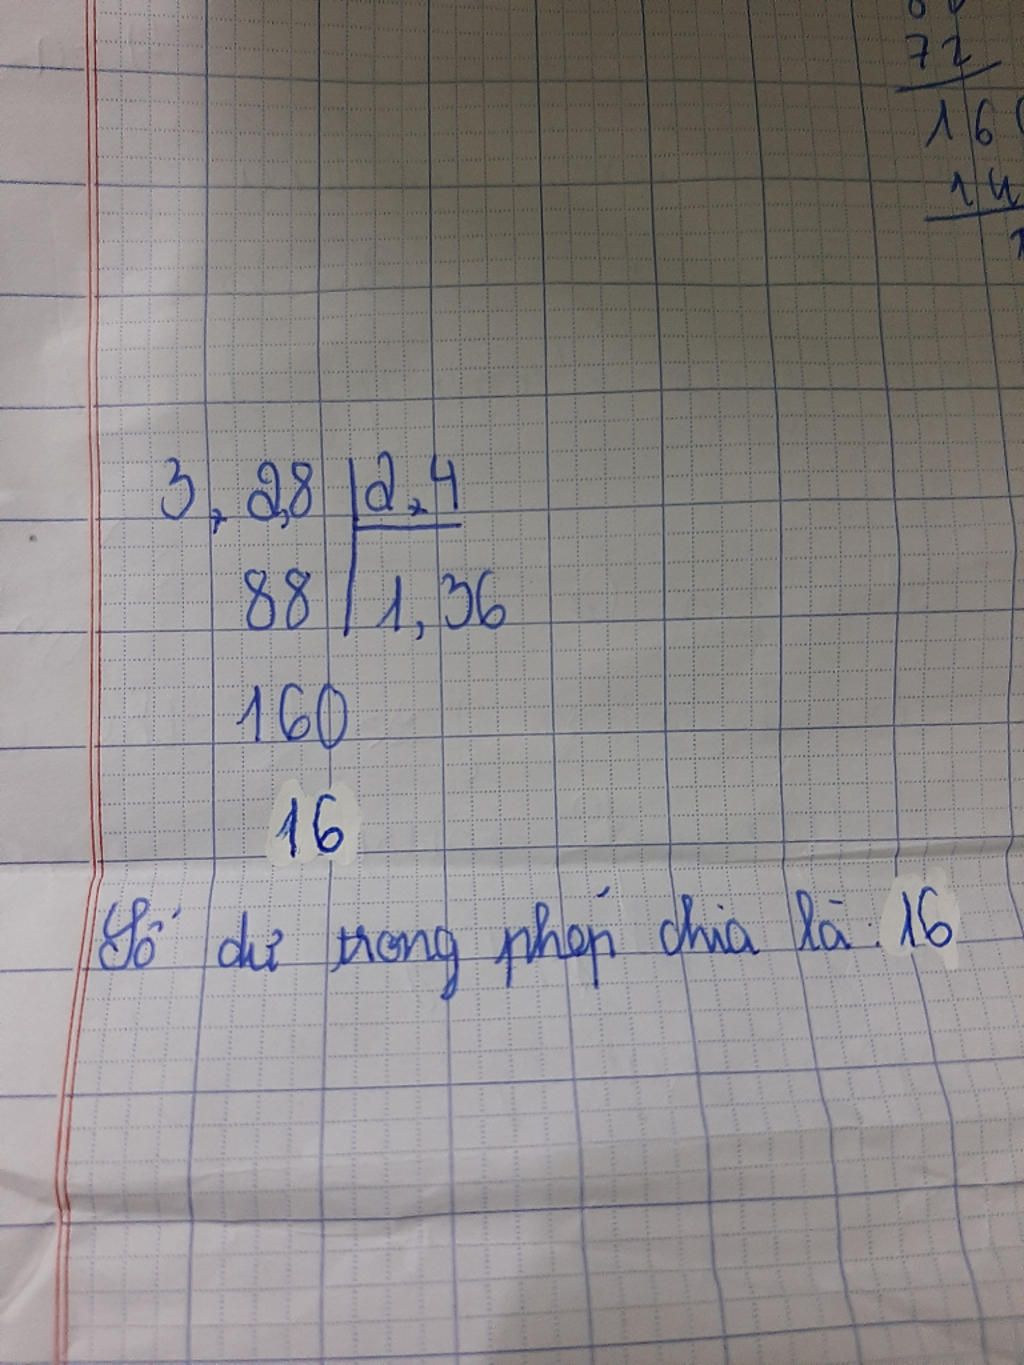 72
16
14
3,2,8 2,4
88 1,36
160
16
Số dư trong phép chia là: 16